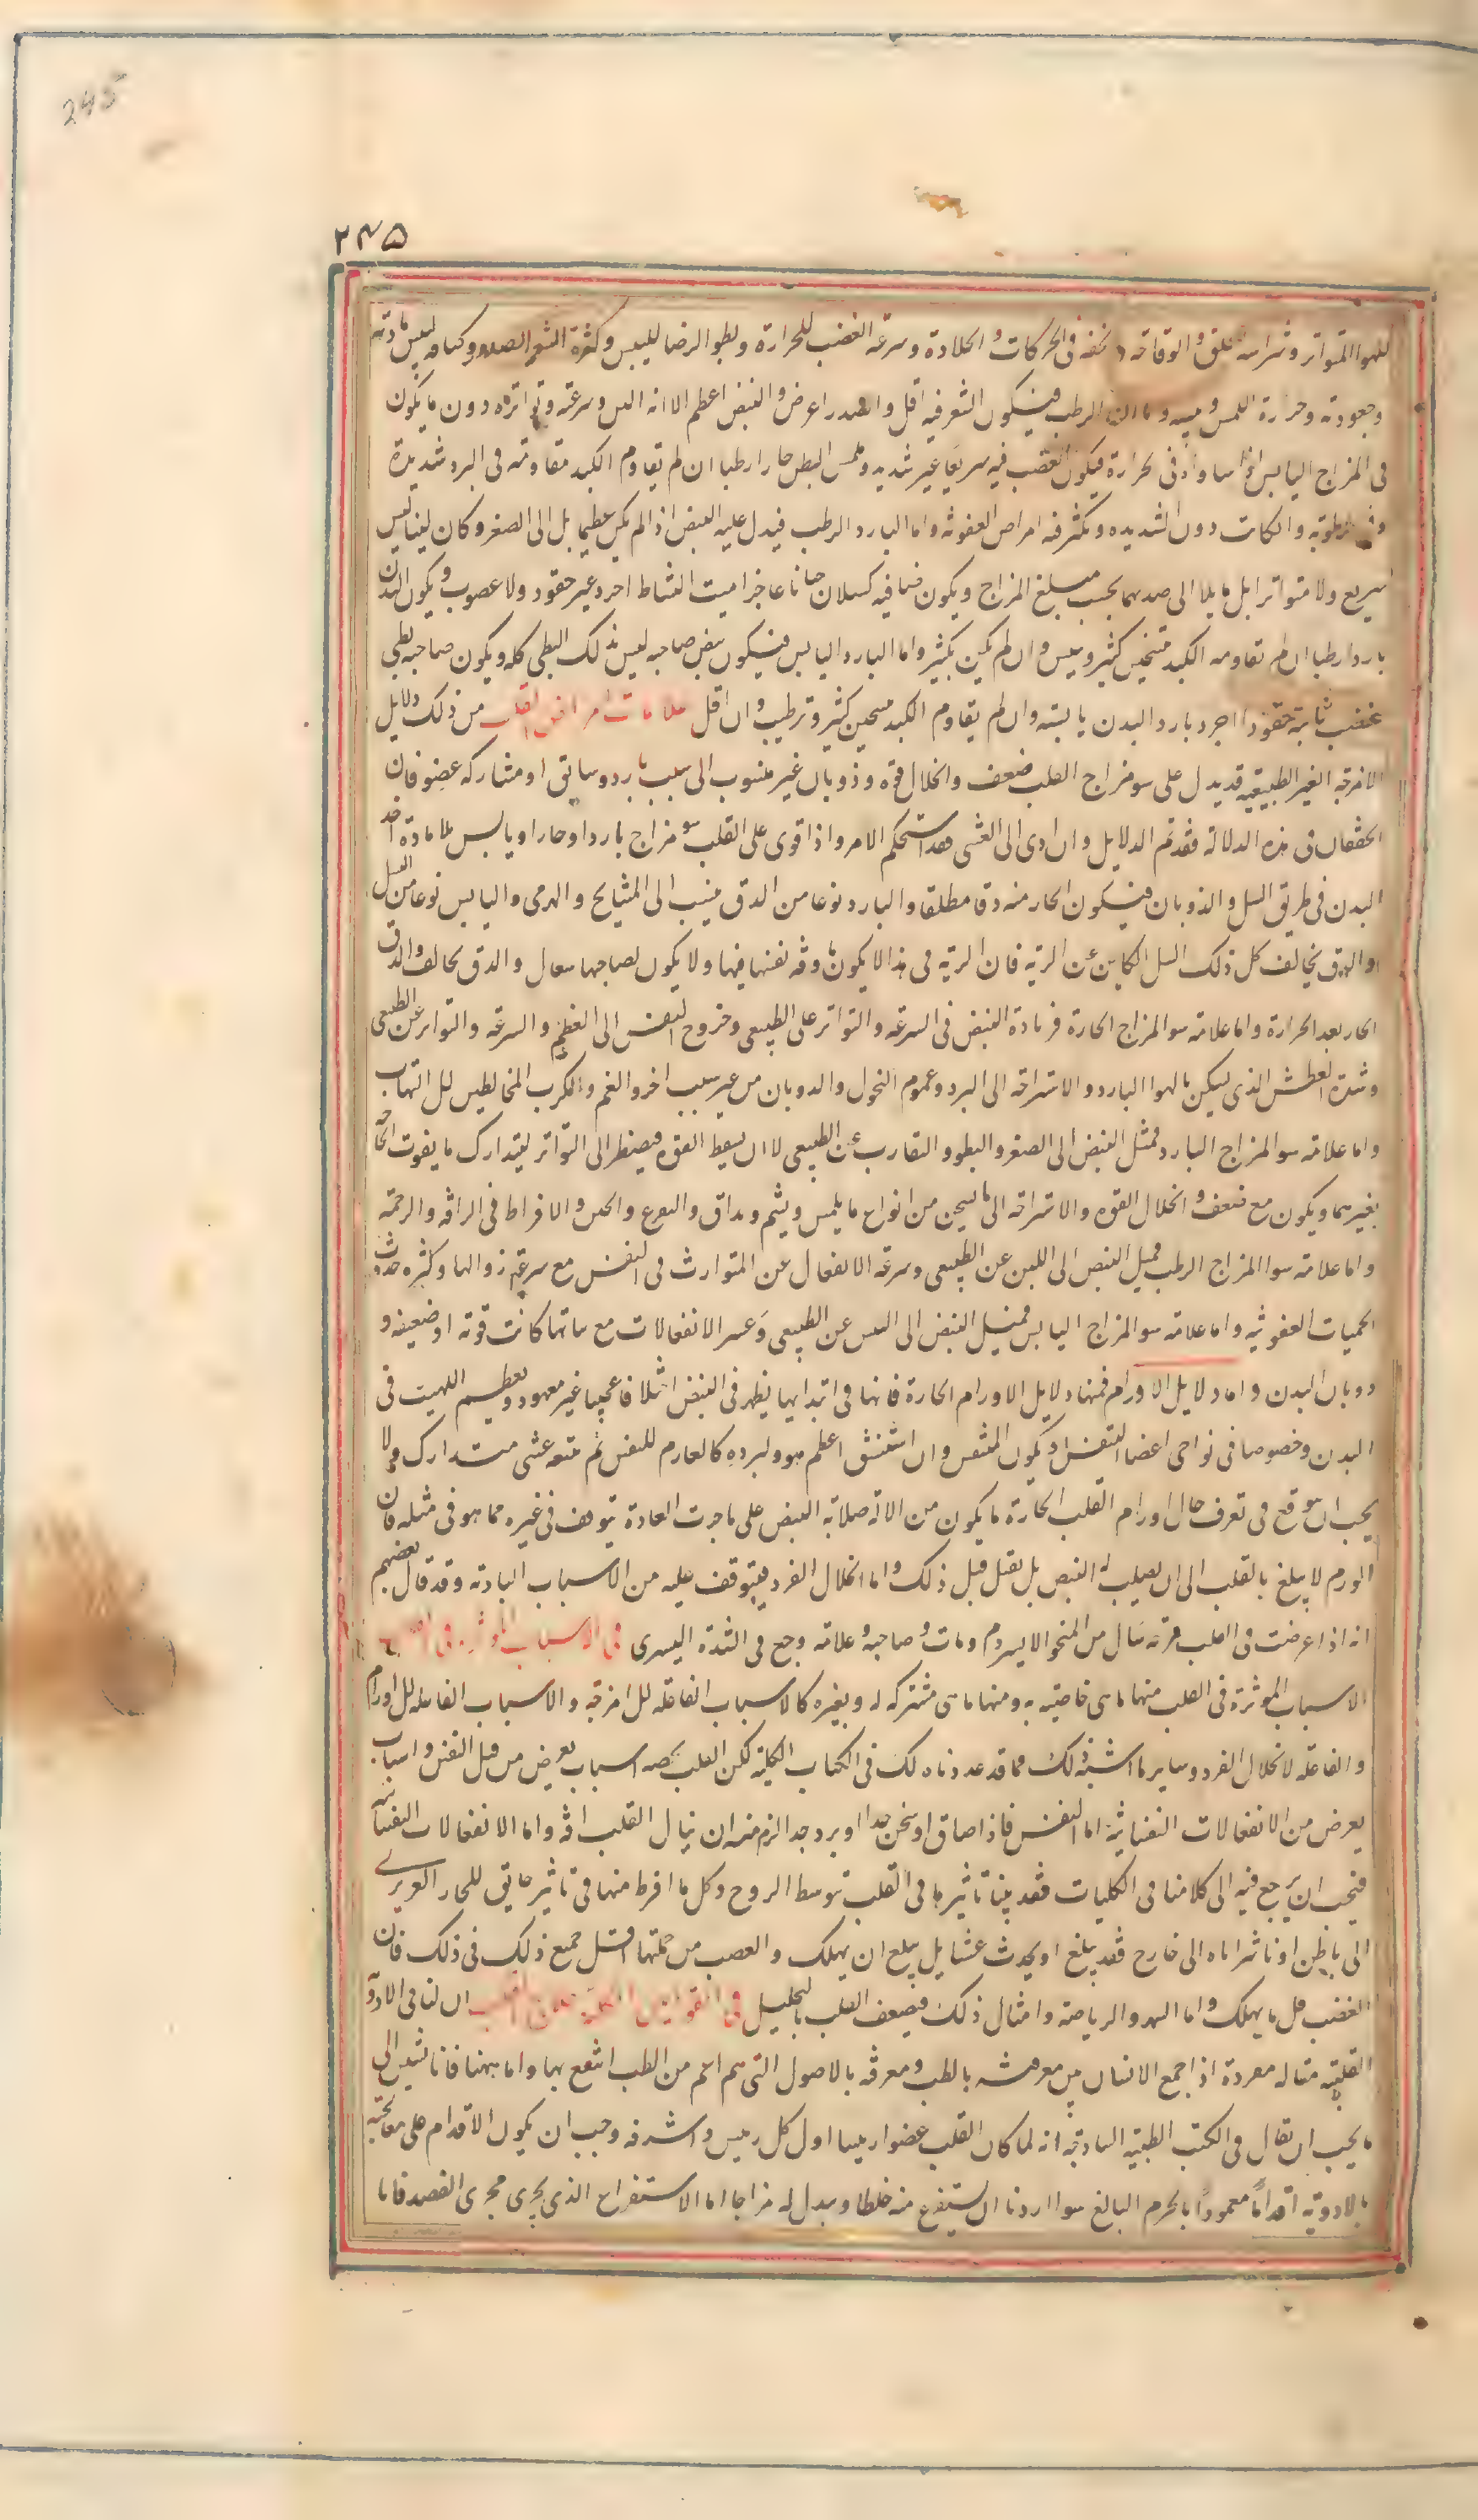 245
۲۴۵
للهوا المتواتر وشراسة خلق والوقاحة و خفة فى الحركات و الجلادة وسرعة الغضب للحرارة وبطو الرضا لليبس وكثرة الشعر الصدر وكثافة لليبس مادته
وجعودته وحرارة اللمس ويبسه واما الحار الرطب فيكون الشعر فيه اقل والصدر اعرض و النبض اعظم الا انه الين وسرعته وتواتره دون ما يكون
فى المزاج اليابس اذا ساواه فى لحرارة فيكون الغضب فيه سريعا غير شديد وملمس البطن حارا رطبا ان لم يقاوم الكبد مقاومة فى البرد شديدة
وفى الرطوبة وان كانت دون الشديده وتكثر فيه امراض العفونة واما البارد الرطب فيدل عليه النبض اذا لم يكن عظيما بل الى الصغر وكان لينا ليس
بسريع ولا متواترا بل مايلا الى ضدهما بحسب مبلغ المزاج ويكون صاحبه كسلان جبانا عاجزا ميت النشاط اجرد غير حقود ولا غضوب ويكون البدن
باردا رطبا ان لم تقاومه الكبد بتسخين كثير ويبس وان لم يكن بكثير واما البارد اليابس فيكون نبض صاحبه ليس بذلك البطى كله ويكون صاحبه بطى
غضب ثابته حقودا اجرد بارد البدن يابسه وان لم يقاوم الكبد بتسخين كثير وترطيب وان اقل علامات امراض القلب من ذلك دلايل
الامزجة الغير الطبيعية قد يدل على سو مزاج القلب ضعف وانحلال قوه وذوبان غير منسوب الى سبب بارد وسابق او مشاركة عضو فان
الخفقان فى هذه الدلالة فقد تم الدلايل وان ادى الى الغشى فقد استحكم الامر واذا قوى على القلب سو مزاج بارد او حار او يابس بلا مادة اخذ
البدن فى طريق السل والذوبان فيكون الحار منه دقا مطلقا والبارد نوعا من الدق ينسب الى المشايخ و الهرمى واليابس نوعا من السل
والدق يخالف كل ذلك السل الكاين عن الرية فان الرية فى هذا لا يكون ماوفه نفسها فيها ولا يكون لصاحبها سعال والدق يخالف والدق
الحار بعد الحرارة واما علامة سو المزاج الحارة فزيادة النبض فى السرعة والتواتر على الطبيعى وخروج النفس الى العظم والسرعة والتواتر عن الطبيعى
وشدة العطش الذى يسكن بالهوا البارد والاستراحة الى البرد وعموم النحول والذوبان من غير سبب اخر والغم والكرب المخالطين للالتهاب
واما علامة سو المزاج البارد فمثل النبض الى الصغر والبطو والتقارب عن الطبيعى لا ان يسقط القوة فيضطر الى التواتر ليتدارك ما يفوت الحاجة
بغيرهما ويكون مع ضعف و انحلال القوه والاستراحة الى ما يسخن من انواع ما يلمس ويشم ويذاق والفزع والجبن والافراط فى الرافة والرحمة
واما علامة سوا المزاج الرطب فميل النبض الى اللين عن الطبيعى وسرعة الانفعال عن المتوارث فى النفس مع سرعة زوالها وكثرة حدوث
الحميات العفونية واما علامة سو المزاج اليابس فميل النبض الى اليبس عن الطبيعى وعسر الانفعالات مع ثباتها كانت قوية او ضعيفة و
ذوبان البدن واما دلايل الاورام فمنها دلايل الاورام الحارة فانها فى ابتدايها يظهر فى النبض اختلافا عجيبا غير معهود ويعظم اللهيب فى
البدن وخصوصا فى نواحى اعضا التنفس ويكون المتنفس وان استنشق اعظم هوا وابرده كالعادم للنفس ثم يتبعه غشى متدارك ولا
يجب ان يتوقع فى تعرف حال اورام القلب الحارة ما يكون من دلالة صلابة النبض على ما جرت العادة بتوقعه فى غيره مما هو فى مثله فان
الورم لا يبلغ بالقلب الى ان يصلب له النبض بل يقتل قبل ذلك واما انحلال الفرد فيتوقف عليه من الاسباب البادية وقد قال بعضهم
انه اذا عرضت فى القلب قرحة سال من المنخر الايسر دم ومات صاحبه وعلامته وجع فى الثندوة اليسرى فى الاسباب الموثرة فى القلب
الاسباب الموثرة فى القلب منها ما هى خاصية به ومنها ما هى مشتركة له وبغيره كالاسباب الفاعلة للامزجة والاسباب الفاعلة للاورام
والفاعلة لانحلال الفرد وساير ما اشبه ذلك مما قد عددناه لك فى الكتاب الكلية لكن القلب يخصه اسباب يعرض من قبل النفس واسباب
يعرض من الانفعالات النفسانية اما النفس فاذا ضاق او سخن جدا او برد جدا لزم منه ان ينال القلب افة واما الانفعالات النفسانية
فيجب ان يرجع فيه الى كلامنا فى الكليات فقد بينا تاثيرها فى القلب بتوسط الروح وكل ما افرط منها فى تاثير خانق للحار الغريزى
الى باطن او ناشر اياه الى خارج فقد يبلغ او يحدث غشيا بل يبلغ ان يهلك والغضب من جملتها اقل جميع ذلك فى ذلك فان
الغضب قل ما يهلك واما السهر والرياضة وامثال ذلك فيضعف القلب بالتحليل فى القوانين الكلية فى علاج القلب ان لنا فى الادوية
القلبية مقالة مفردة اذا جمع الانسان بين معرفته بالطب ومعرفه بالاصول التى هى اعم من الطب انتفع بها واما ههنا فانا نشير الى
ما يجب ان يقال فى الكتب الطبية الساذجة انه لما كان القلب عضوا رئيسا اول كل رييس واشرفه وجب ان يكون الاقدام على معالجته
بالادوية اقداما معمودا بالحزم البالغ سوا اردنا ان يستفرغ منه خلطا ويبدل له مزاجا اما الاستفراغ الذى يجرى مجرى الفصد فانا